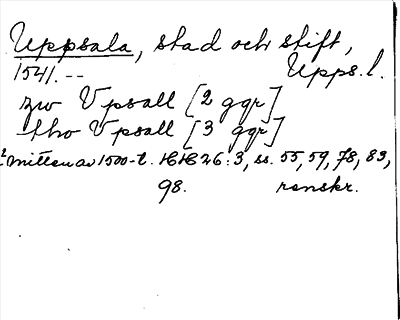 Uppsala, stad och stift,
1541. -- Upps. l.
zw Vpsall [2 ggr]
tho Vpsall [3 ggr]
mitten av 1500-t. HH 26:3, ss. 55, 59, 78, 83,
98. renskr.